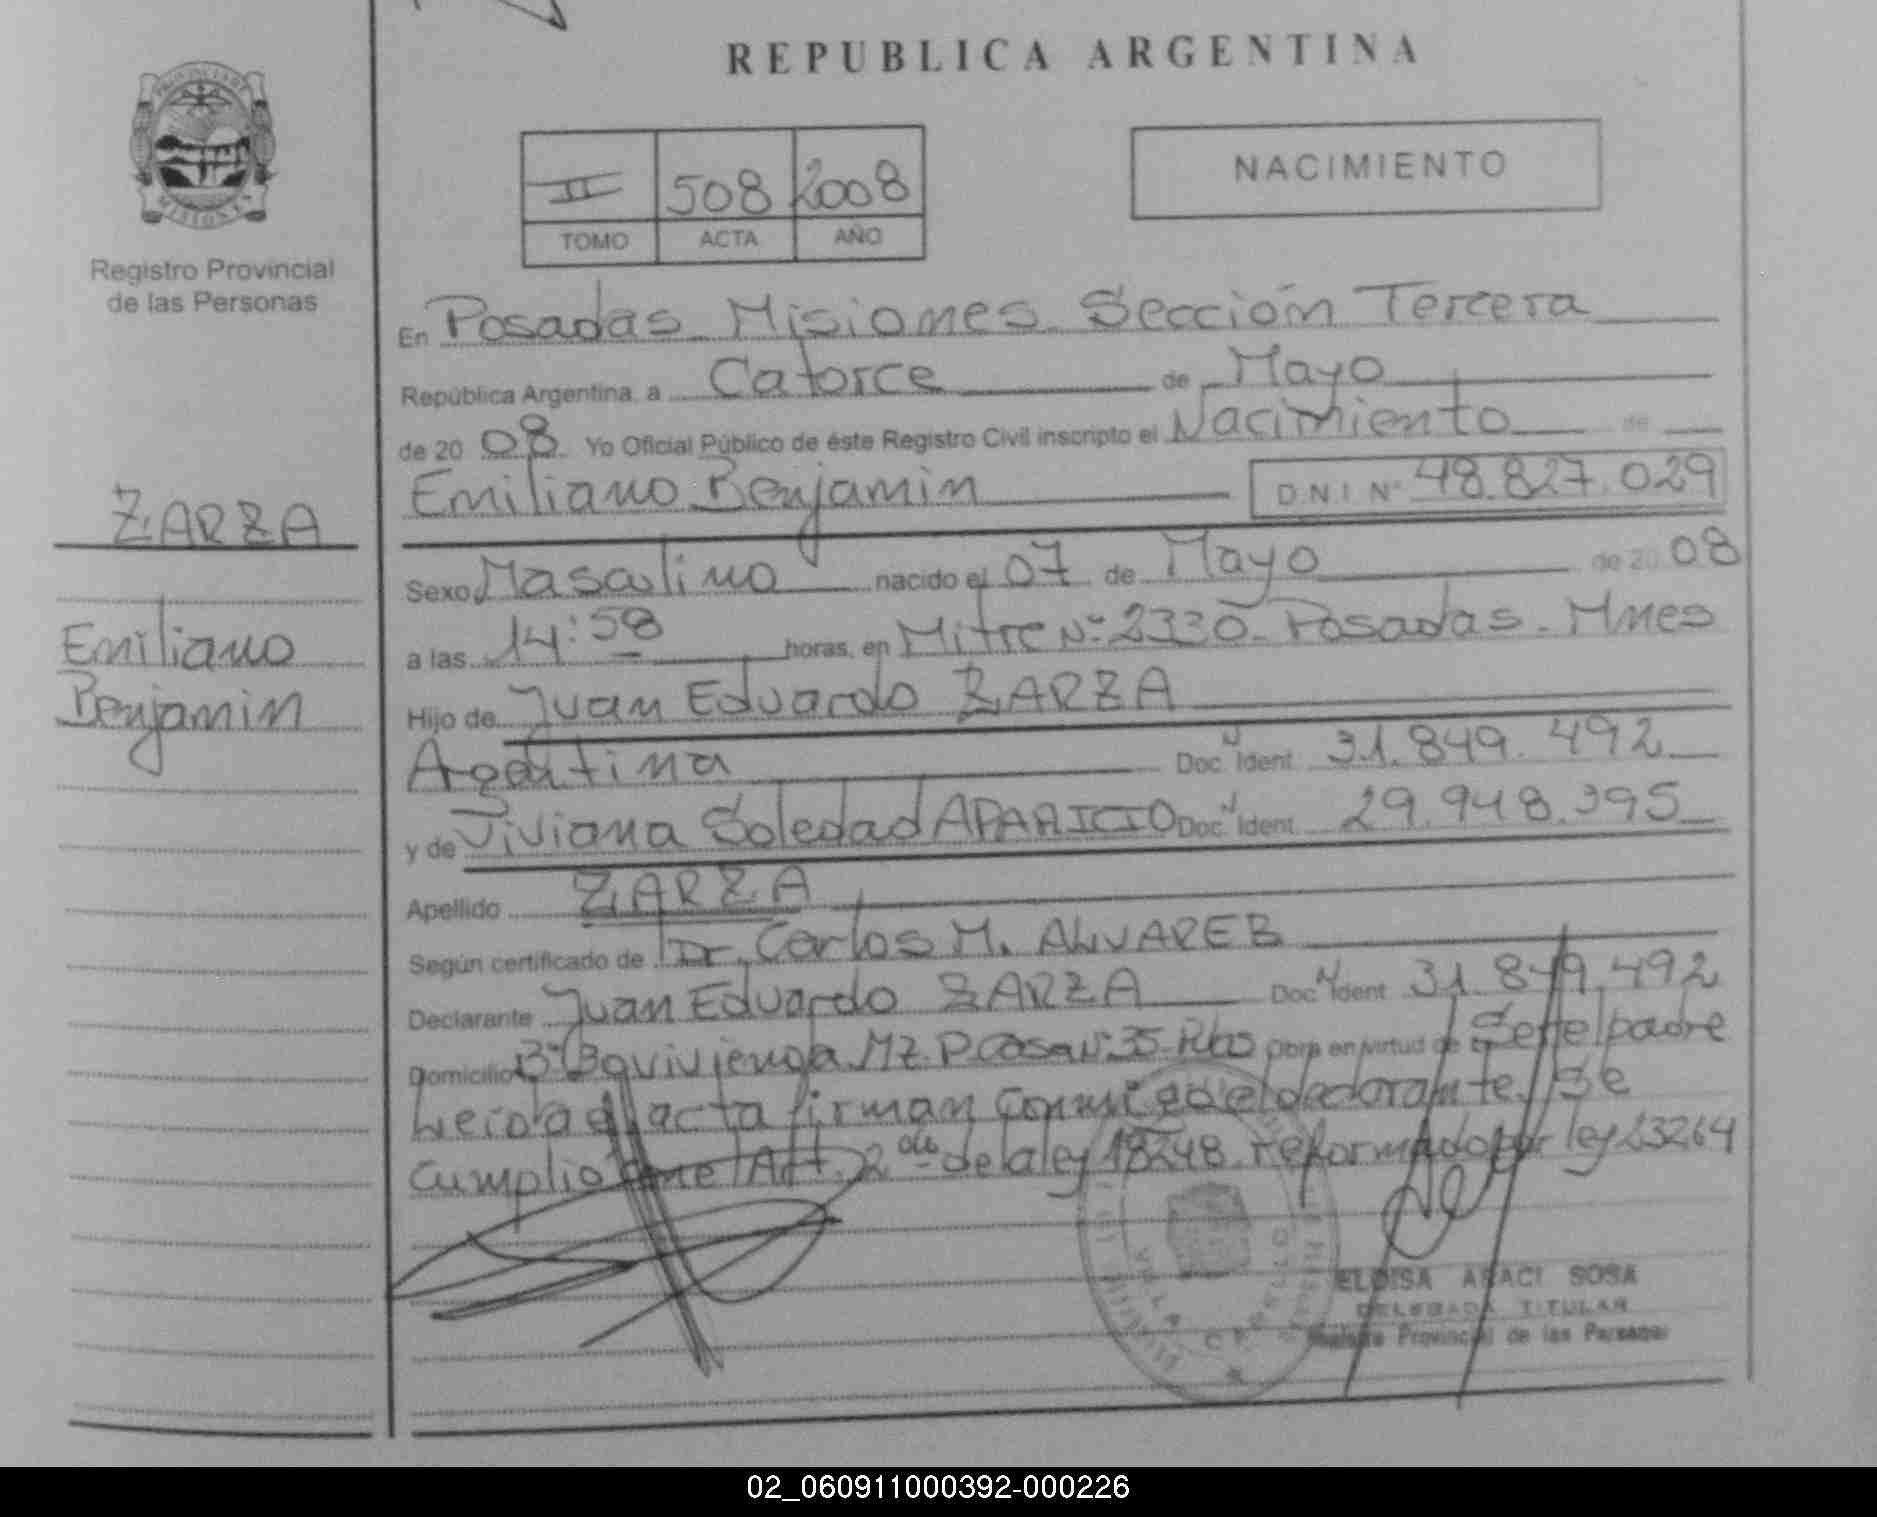 REPUBLICA ARGENTINA
PROVINCIA DE
MISIONES
Registro Provincial
de las Personas
II 508 2008
TOMO ACTA AÑO
NACIMIENTO
En Posadas Misiones Sección Tercera
República Argentina, a Catorce de Mayo
de 20 08 Yo Oficial Público de éste Registro Civil inscripto el Nacimiento de
Emiliano Benjamin D N I Nº 48.827.029
ZARZA
Emiliano
Benjamin
Sexo Masculino nacido el 07 de Mayo de 20 08
a las 14:58 horas, en Mitre Nº 2330 Posadas - Mnes
Hijo de Juan Eduardo ZARZA
Argentina Doc. Ident. 31.849.492
y de Viviana Soledad APARICIO Doc. Ident. 29.948.395
Apellido ZARZA
Según certificado de Dr. Carlos M. ALVAREZ
Declarante Juan Eduardo ZARZA Doc. Ident. 31.849.492
Domicilio Bº MZ. P Casa Nº 35 Obra en virtud de Ser el padre
Leida el acta firman conmigo el declarante. Se
Cumplio Art. 2 de la ley 18248 reformado por ley 23264
ELOISA ARACI SOSA
DELEGADA TITULAR
Registro Provincial de las Personas
02_060911000392-000226